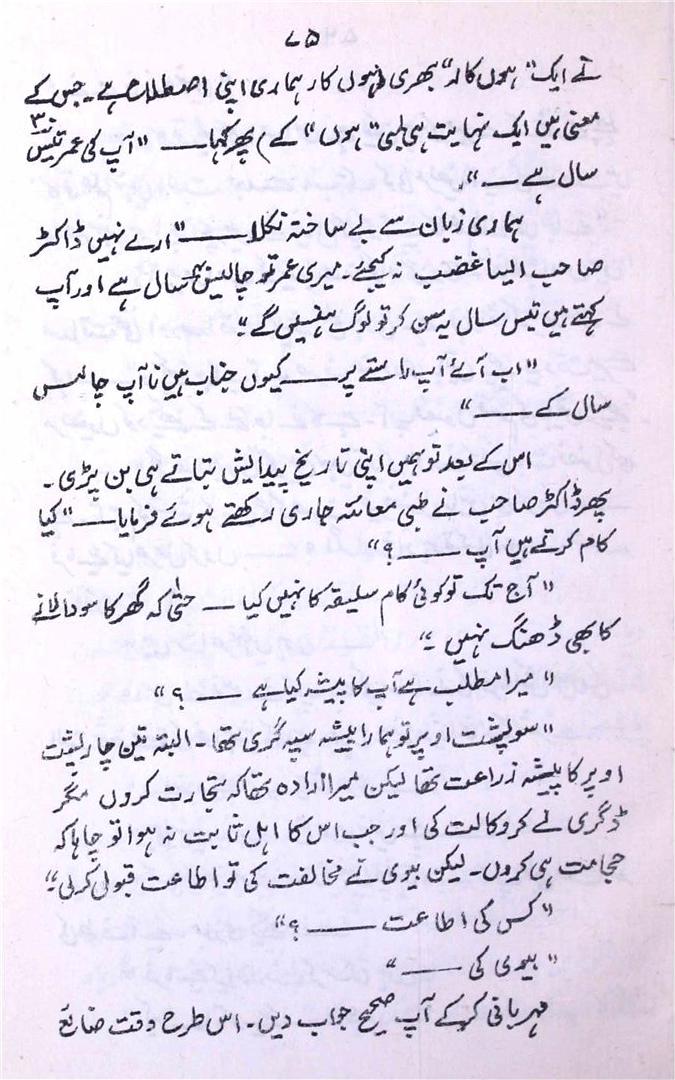 ۷۵
نے ایک "ہوں کار" بھری (ہوں کار ہماری اپنی اصطلاح ہے۔ جس کے
معنی ہیں ایک نہایت ہی لمبی "ہوں" کے) پھر کہا ــــ "آپ کی عمر تیس ۳۰
سال ہے ــــ"
ہماری زبان سے بے ساختہ نکلا ــــ "ارے نہیں ڈاکٹر
صاحب ایسا غضب نہ کیجئے۔ میری عمر تو چالیس سال ہے اور آپ
کہتے ہیں تیس سال یہ سن کر تو لوگ ہنسیں گے"
"اب آئے آپ راستے پر ــــ کیوں جناب ہیں نا آپ چالیس
سال کے ــــ"
اس کے بعد تو ہمیں اپنی تاریخ پیدایش بتاتے ہی بن پڑی۔
پھر ڈاکٹر صاحب نے طبی معائنہ جاری رکھتے ہوئے فرمایا ــــ "کیا
کام کرتے ہیں آپ ــــ ؟"
"آج تک تو کوئی کام سلیقہ کا نہیں کیا ــ حتٰی کہ گھر کا سودا لانے
کا بھی ڈھنگ نہیں۔"
"میرا مطلب ہے آپ کا پیشہ کیا ہے ــــ ؟"
"سو پشت اوپر تو ہمارا پیشہ سپہ گری تھا۔ البتہ تین چار پشت
اوپر کا پیشہ زراعت تھا لیکن میرا ارادہ تھا کہ تجارت کروں مگر
ڈگری لے کر وکالت کی اور جب اس کا اہل ثابت نہ ہوا تو چاہا کہ
حجامت ہی کروں۔ لیکن بیوی نے مخالفت کی تو اطاعت قبول کرلی"
"کس کی اطاعت ــــ ؟"
"بیوی کی ــــ"
مہربانی کرکے آپ صحیح جواب دیں۔ اس طرح وقت ضائع